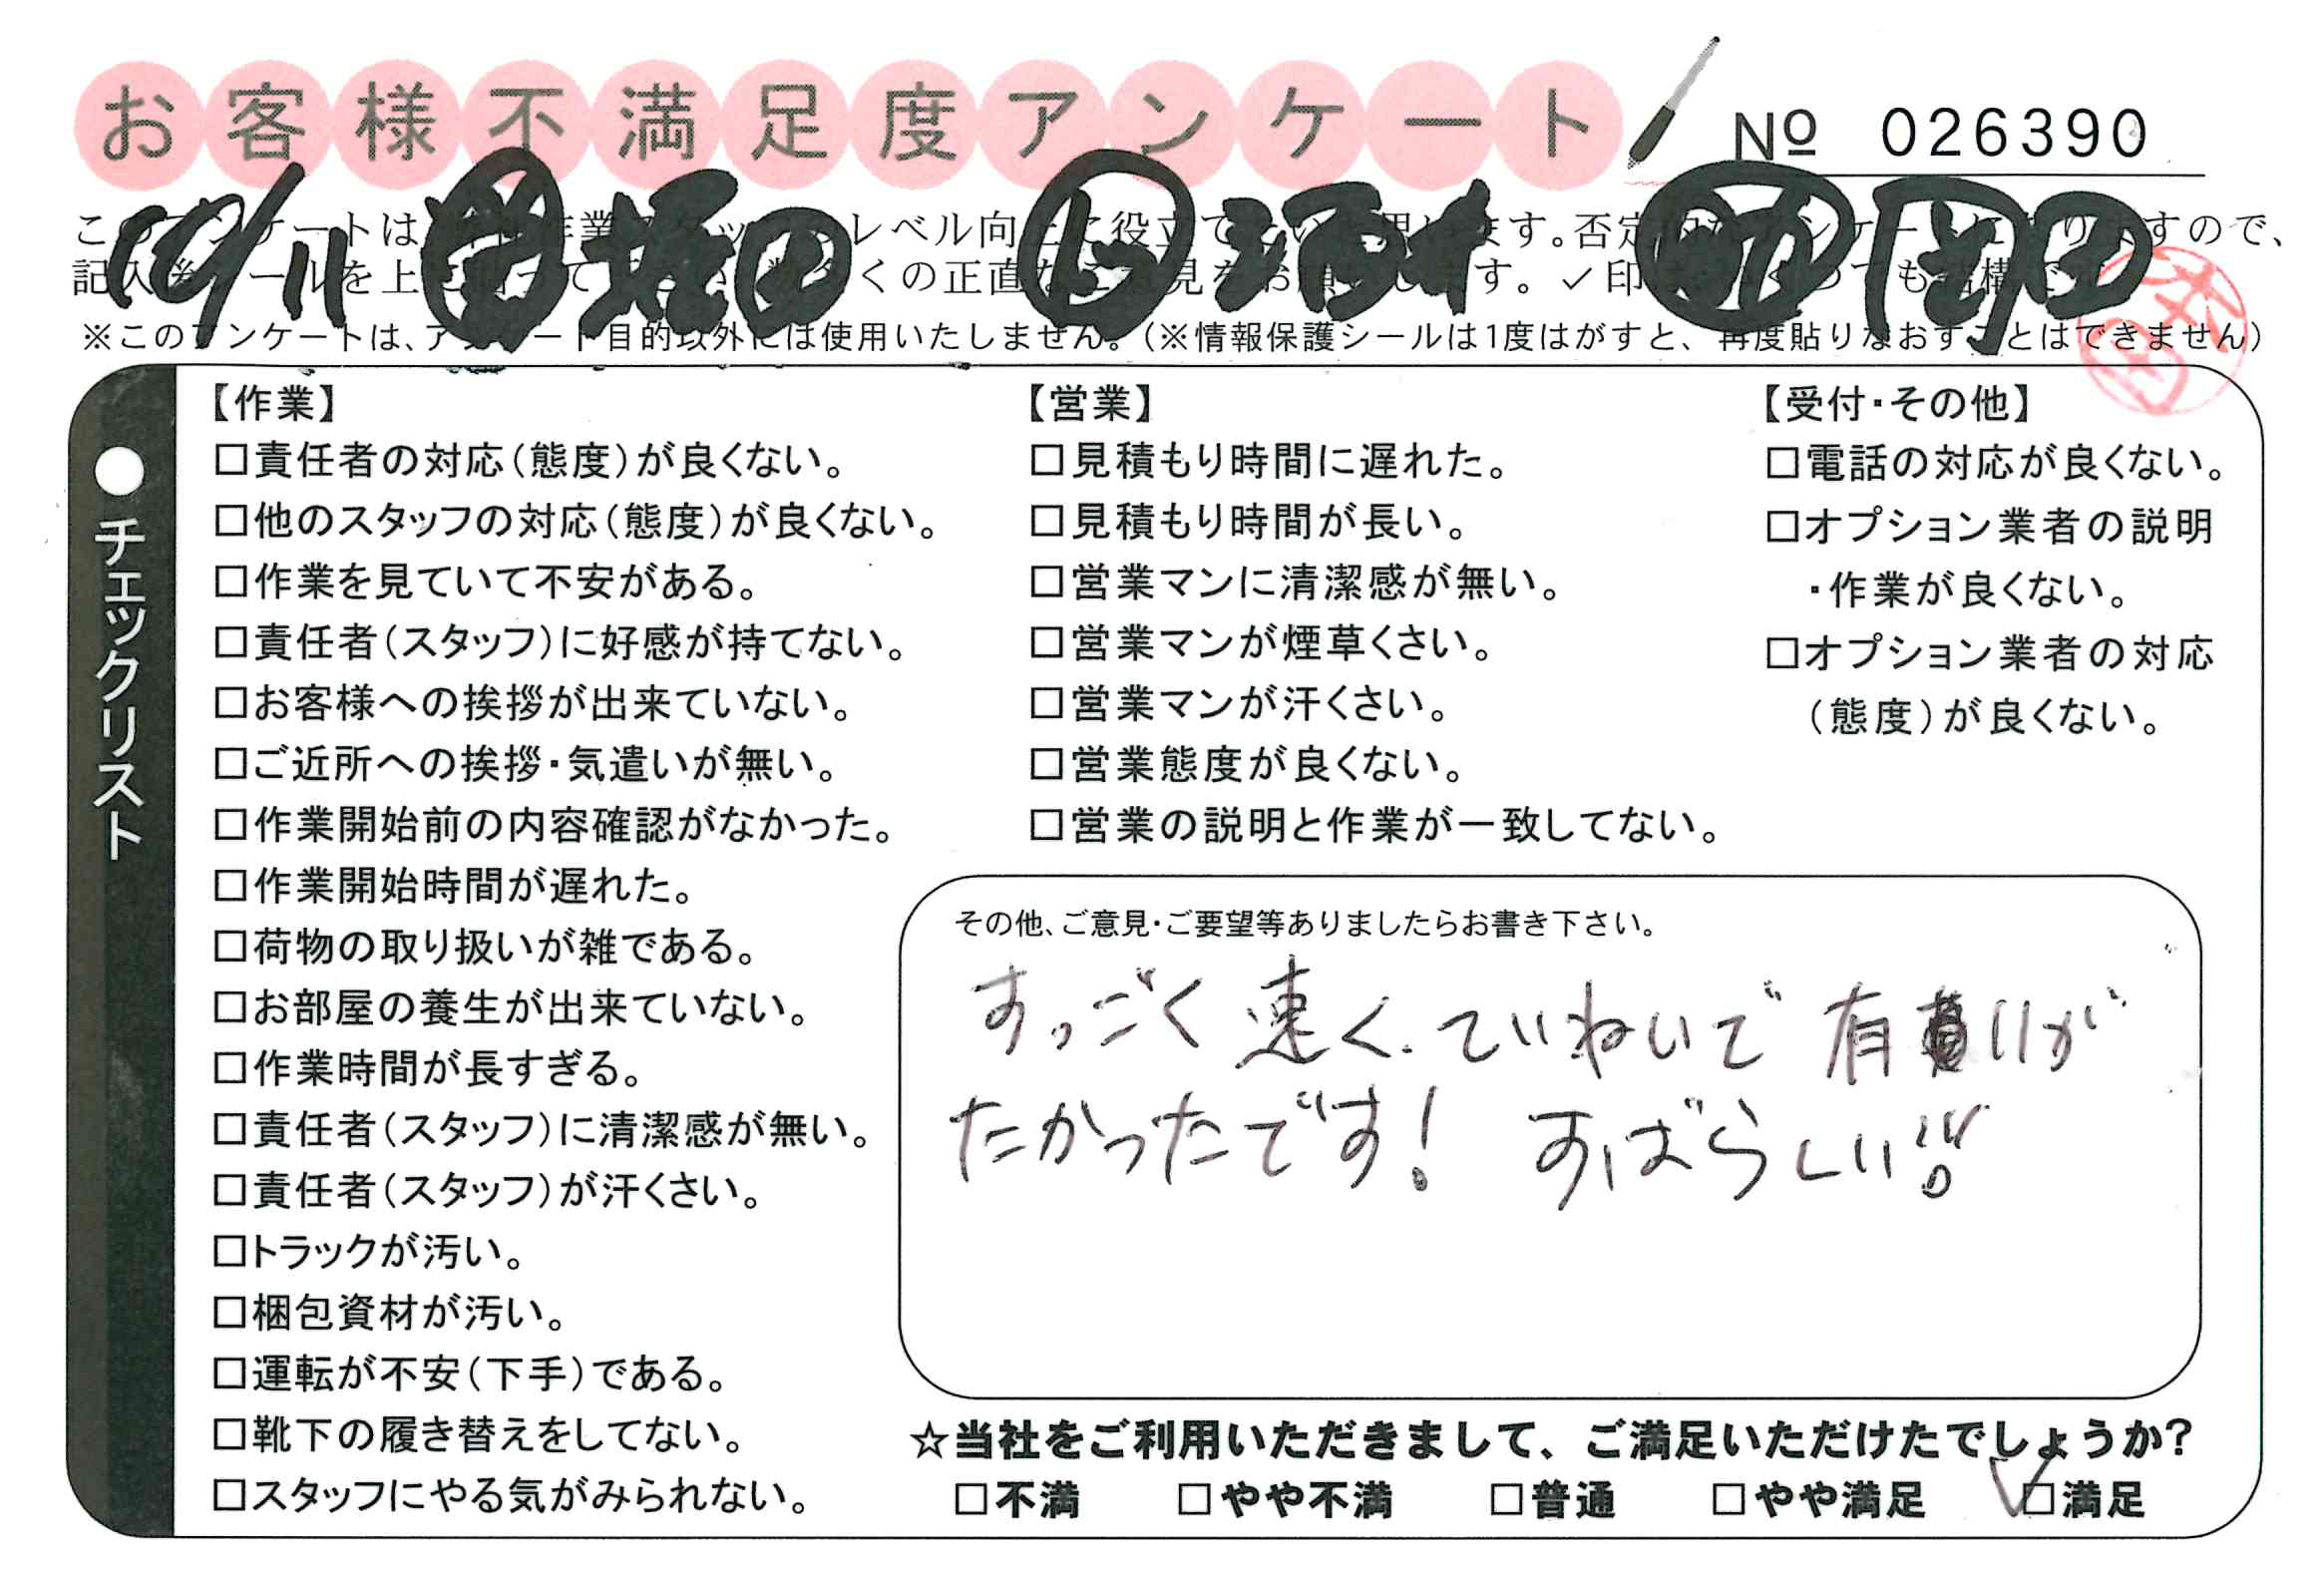 お客様不満足度アンケート
No 026390
10/11 堀田 岡田
※このアンケートは、アンケート目的以外には使用いたしません。(※情報保護シールは1度はがすと、再度貼りなおすことはできません)
●チェックリスト
【作業】
□責任者の対応(態度)が良くない。
□他のスタッフの対応(態度)が良くない。
□作業を見ていて不安がある。
□責任者(スタッフ)に好感が持てない。
□お客様への挨拶が出来ていない。
□ご近所への挨拶・気遣いが無い。
□作業開始前の内容確認がなかった。
□作業開始時間が遅れた。
□荷物の取り扱いが雑である。
□お部屋の養生が出来ていない。
□作業時間が長すぎる。
□責任者(スタッフ)に清潔感が無い。
□責任者(スタッフ)が汗くさい。
□トラックが汚い。
□梱包資材が汚い。
□運転が不安(下手)である。
□靴下の履き替えをしてない。
□スタッフにやる気がみられない。
【営業】
□見積もり時間に遅れた。
□見積もり時間が長い。
□営業マンに清潔感が無い。
□営業マンが煙草くさい。
□営業マンが汗くさい。
□営業態度が良くない。
□営業の説明と作業が一致してない。
【受付・その他】
□電話の対応が良くない。
□オプション業者の説明
・作業が良くない。
□オプション業者の対応
(態度)が良くない。
その他、ご意見・ご要望等ありましたらお書き下さい。
すっごく速く.ていねいで 有りが
たかったです! すばらしい!!
☆当社をご利用いただきまして、ご満足いただけたでしょうか?
□不満 □やや不満 □普通 □やや満足 ✓□満足